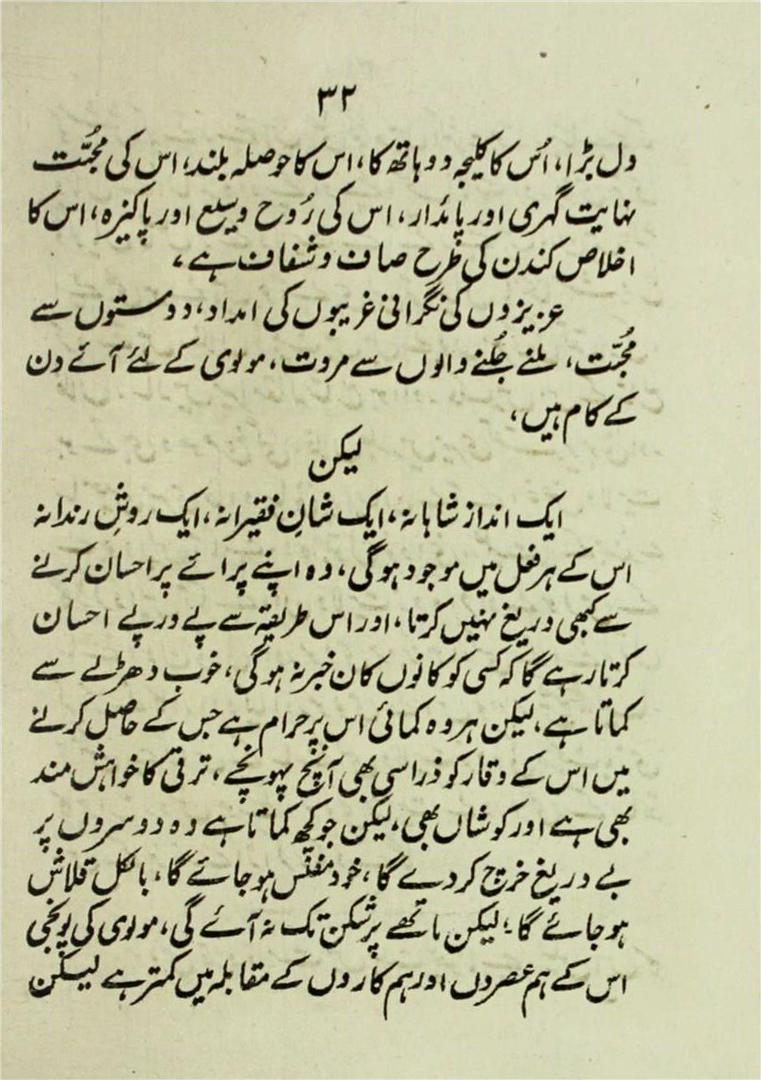 ۳۲
دل بڑا، اُس کا کلیجہ دو ہاتھ کا، اس کا حوصلہ بلند، اس کی محبّت
نہایت گہری اور پائدار، اس کی رُوح وسیع اور پاکیزہ، اس کا
اخلاص کندن کی طرح صاف و شفاف ہے،
عزیزوں کی نگرانی غریبوں کی امداد، دوستوں سے
محُبّت، ملنے جُلنے والوں سے مروت، مولوی کے لئے آئے دن
کے کام ہیں،
لیکن
ایک انداز شاہانہ، ایک شانِ فقیرانہ، ایک روشِ رندانہ
اس کے ہر فعل میں موجود ہوگی، وہ اپنے پرائے پر احسان کرنے
سے کبھی دریغ نہیں کرتا، اور اس طریقہ سے پے در پے احسان
کرتا رہے گا کہ کسی کو کانوں کان خبر نہ ہوگی، خوب دھڑلے سے
کماتا ہے، لیکن ہر وہ کمائی اس پر حرام ہے جس کے حاصل کرنے
میں اس کے وقار کو ذرا سی بھی آنچ پہونچے، ترقی کا خواہش مند
بھی ہے اور کوشاں بھی، لیکن جو کچھ کماتا ہے وہ دوسروں پر
بے دریغ خرچ کردے گا، خود مفلس ہوجائے گا، بالکل قلاش
ہوجائے گا، لیکن ماتھے پر شکن تک نہ آئے گی، مولوی کی پونجی
اس کے ہم عصروں اور ہم کاروں کے مقابلہ میں کمتر ہے لیکن